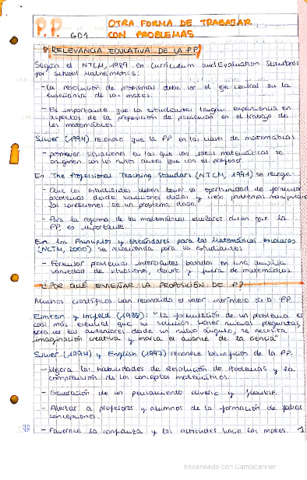 P.P. OTRA FORMA DE TRABAJAR
601 CON PROBLEMAS
RELEVANCIA EDUCATIVA DE LA PP
Según el NTCM, 1989 en Curriculum and Evaluation Standards
for School Mathematics:
- La resolución de problemas debe ser el eje central en la
enseñanza de las mates.
- Es importante que los estudiantes tengan experiencia en
aspectos de la proposición de problemas en el trabajo de
las matemáticas.
Silver (1994) reconoce que la PP en las clases de matemáticas:
- promover situaciones en las que las ideas matemáticas se
originen con los niños antes que con el profesor
En The Professional Training Standars (NTCM, 1991) se sugiere:
- Que los estudiantes deben tener la oportunidad de formular
problemas desde situaciones dadas y crear problemas
las condiciones de un problema dado.
- Para la reforma de las matemáticas escolares dicen que la
PP es importante
En los Principios y Estándares para las Matemáticas Escolares
(NCTM, 2000) se recomienda para los estudiantes
- Formular problemas interesantes basados en una amplia
variedad de situaciones, dentro y fuera de matemáticas
¿POR QUÉ ENSEÑAR LA PROPOSICIÓN DE PP
Muchos científicos han reconocido el valor intrínseco de la PP.
Einstein y Infeld (1938): "La formulación de un problema es
casi más esencial que su solución. Hacer nuevas preguntas,
desde un nuevo ángulo, se necesita
imaginación creativa y marca el avance de la ciencia"
Silver (1994) y English (1997) reconocen beneficios de la PP.
- Mejora las habilidades de resolución de problemas y la
comprensión de los conceptos matemáticos.
- Generación de un pensamiento diverso y flexible.
- Alertar a profesores y alumnos de la formación de falsas
concepciones.
- Favorece la confianza y las actitudes hacia las mates. 1
Escaneado con CamScanner